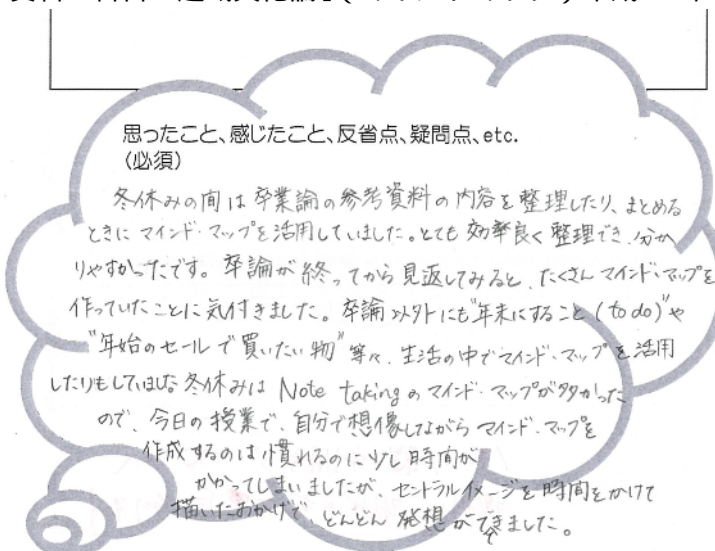 思ったこと、感じたこと、反省点、疑問点、etc.
(必須)
冬休みの間は卒業論の参考資料の内容を整理したり、まとめる
ときにマインド・マップを活用していました。とても効率良く整理でき、分か
りやすかったです。卒論が終ってから見返してみると、たくさんマインド・マップを
作っていたことに気付きました。卒論以外にも"年末にすること(to do)"や
"年始のセールで買いたい物"等々、生活の中でマインド・マップを活用
したりもしていました。冬休みは Note takingのマインド・マップが多かった
ので、今日の授業で、自分で想像しながらマインド・マップを
作成するのは慣れるのに少し時間が
かかってしまいましたが、セントラルイメージを時間をかけて
描いたおかげで、どんどん発想ができました。